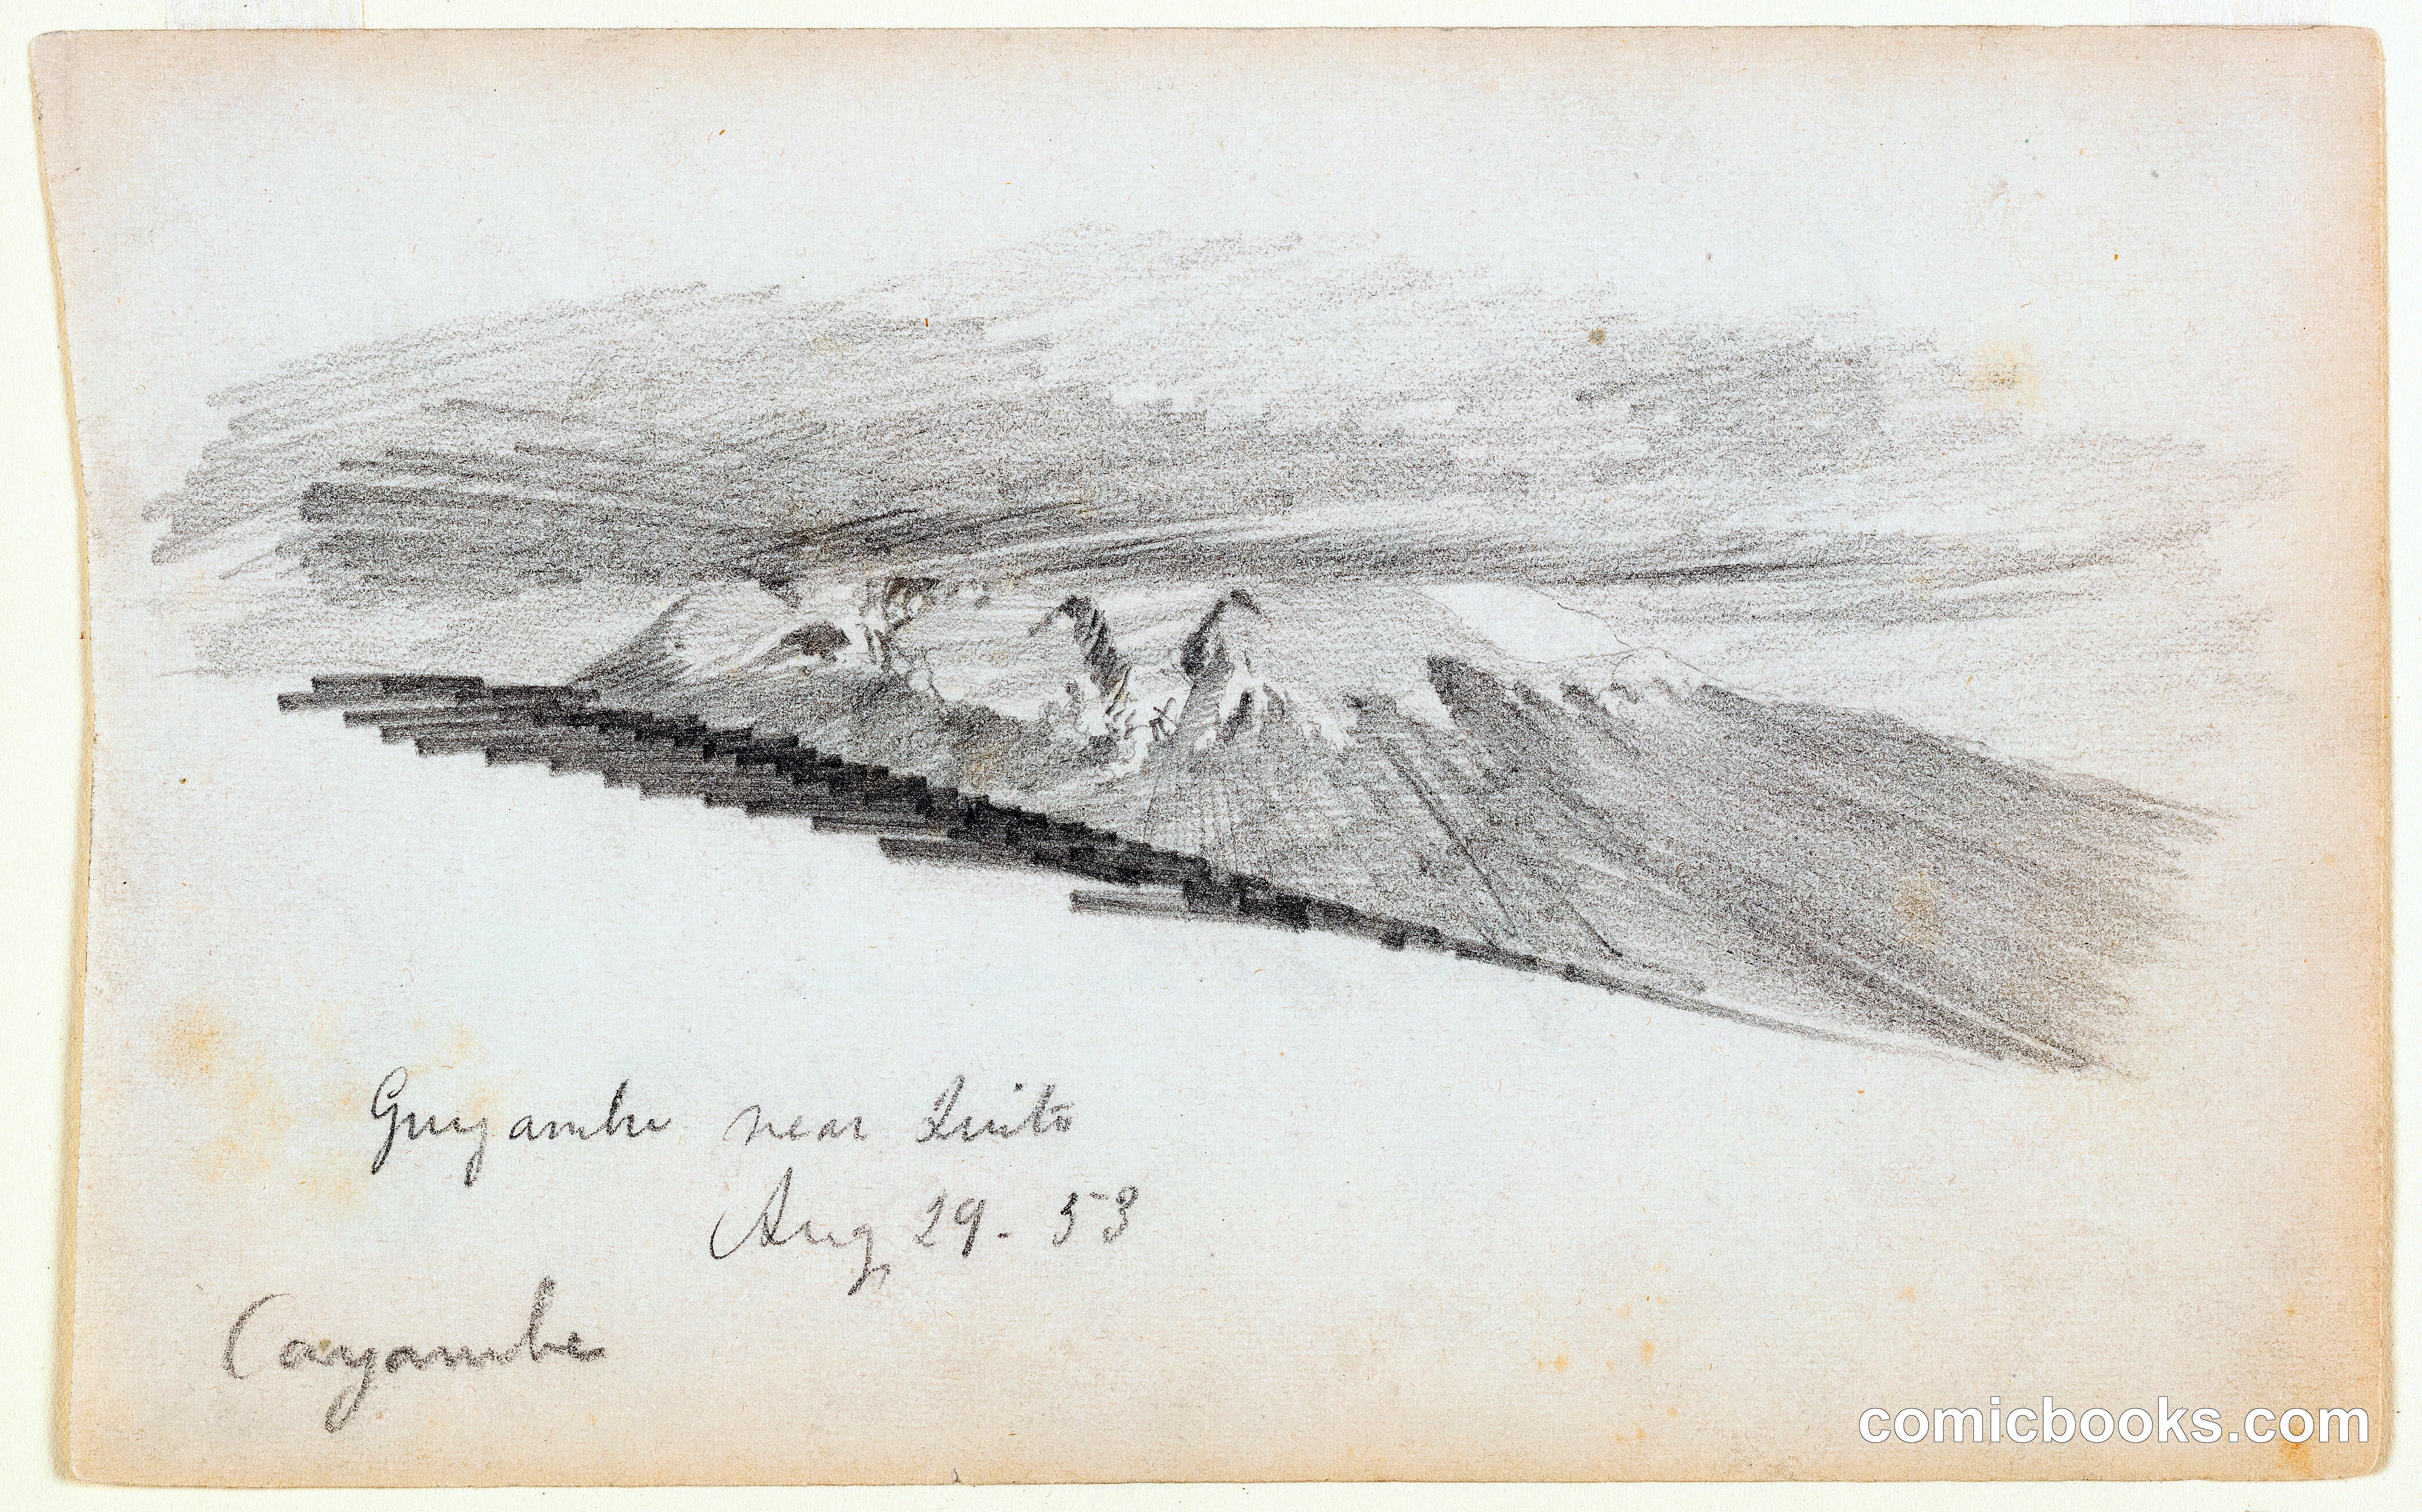 Guyambe near Quito
Aug 29 - 53
Cayambe
comicbooks.com